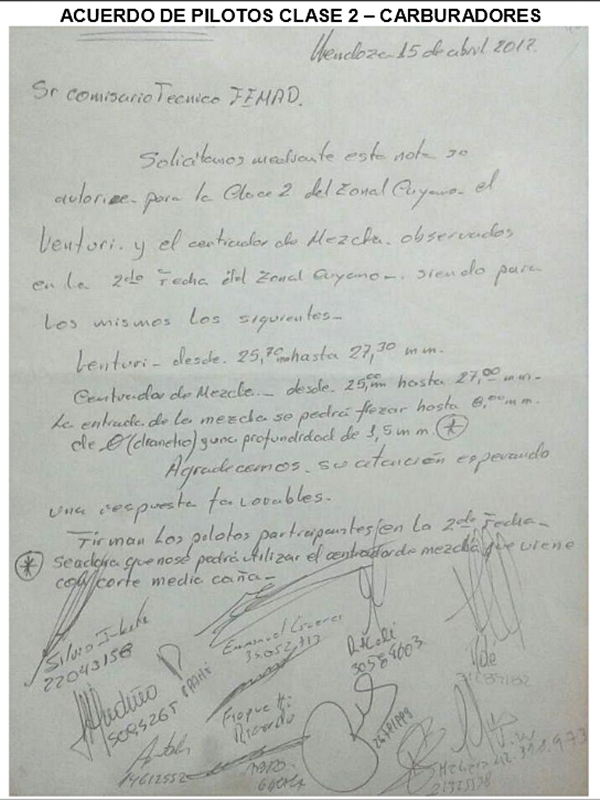 ACUERDO DE PILOTOS CLASE 2 – CARBURADORES
Mendoza 15 de abril 2017.
Sr comisario Tecnico FEMAD.
Solicitamos mediante esta nota se
autorice para la Clace 2 del Zonal Cuyano el
Venturi. y el centrador de Mezcla. observados
en la 2da Fecha del Zonal Cuyano-. siendo para
Los mismos Los siguientes-
Venturi- desde. 25,70mm hasta 27,30 mm.
Centrador de Mezcla.- desde. 25,00mm hasta 27,00 mm-
La entrada de la mezcla se podrá frezar hasta 8,00mm.
de Ø (diametro) y una profundidad de 1,5 mm. (*)
Agradecemos. su atención esperando
una respuesta favorables.
Firman Los pilotos participantes en la 2da Fecha-
(*) Se aclara que no se podrá utilizar el centrador de mezcla que viene
con corte media caña-
Silvio
22043158
Emmanuel
30584003
Ricardo